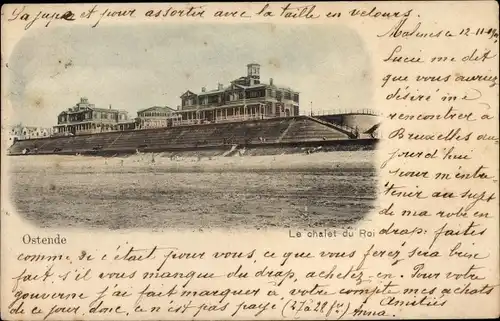 La jupe et pour assortir avec la taille en velours.
Malines le 12-11-
Lucie me dit
que vous auriez
désiré me
rencontrer à
Bruxelles au-
jourd'hui
pour m'entre
tenir au sujet
de ma robe en
drap: faites
Ostende
Le chalet du Roi
comme, de c'était pour vous, ce que vous ferez sera bien
fait, s'il vous manque du drap, achetez-en. Pour votre
gouverne j'ai fait marquer à votre compte mes achats
de ce jour, donc, ce n'est pas payé (27 à 28 frs) Amitiés
Anna.